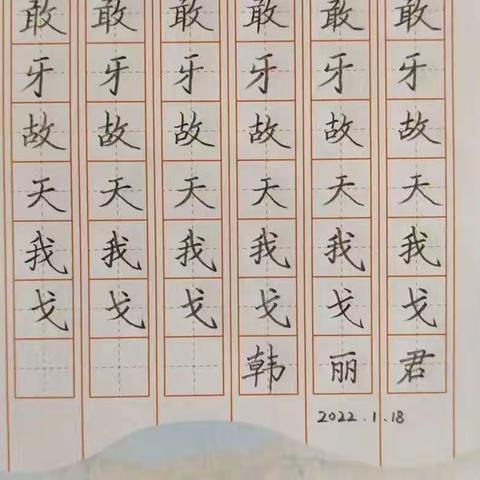 敢 敢 敢 敢 敢 敢
牙 牙 牙 牙 牙 牙
故 故 故 故 故 故
天 天 天 天 天 天
我 我 我 我 我 我
戈 戈 戈 戈 戈 戈
韩 丽 君
2022.1.18